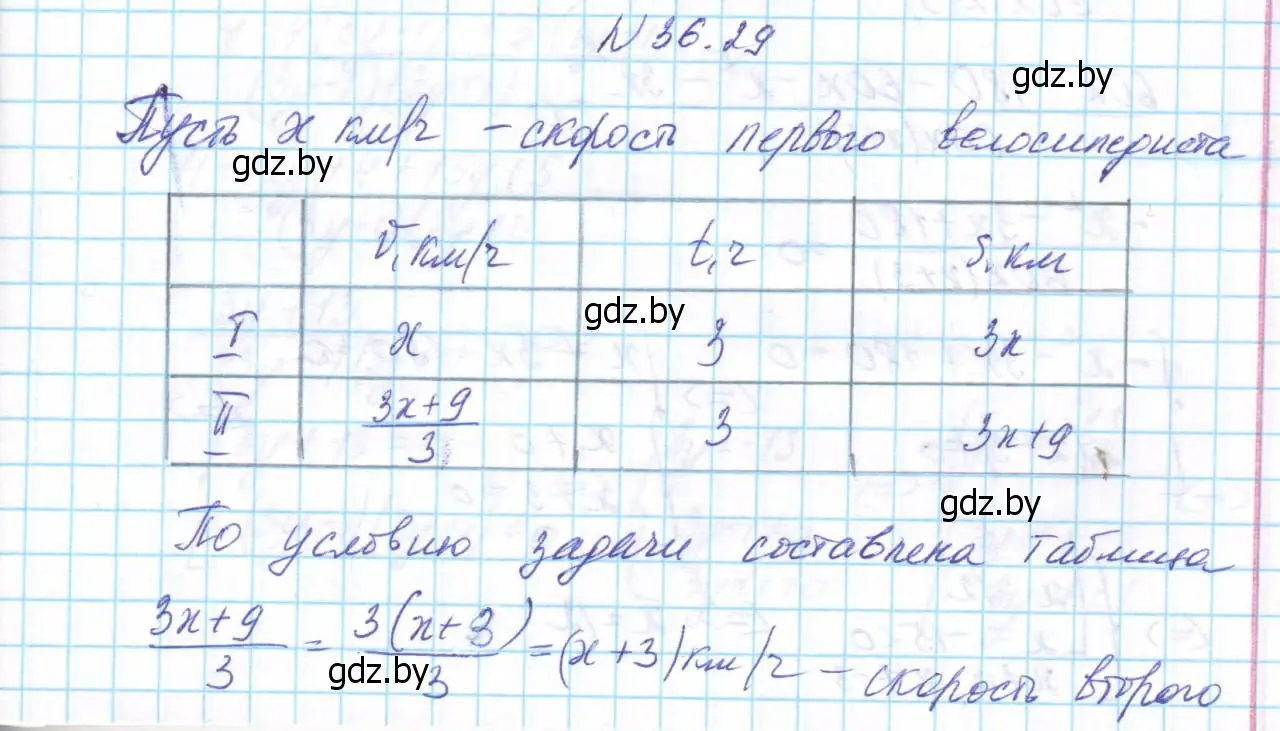 N 36.29
gdz.by
Пусть x км/ч - скорость первого велосипедиста
gdz.by
v, км/ч t, ч s, км
gdz.by
I x 3 3x
II (3x+9)/3 3 3x+9
gdz.by
По условию задачи составлена таблица
(3x+9)/3 = 3(x+3)/3 = (x+3) км/ч - скорость второго
gdz.by